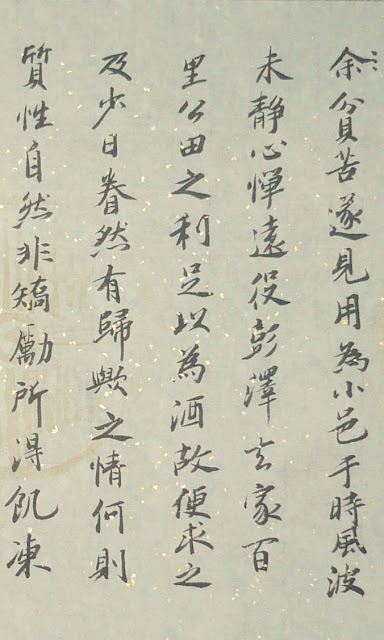 余貧苦遂見用為小邑于時風波
未静心憚遠役彭澤去家百
里公田之利足以為酒故便求之
及少日眷然有歸歟之情何則
質性自然非矯勵所得飢凍